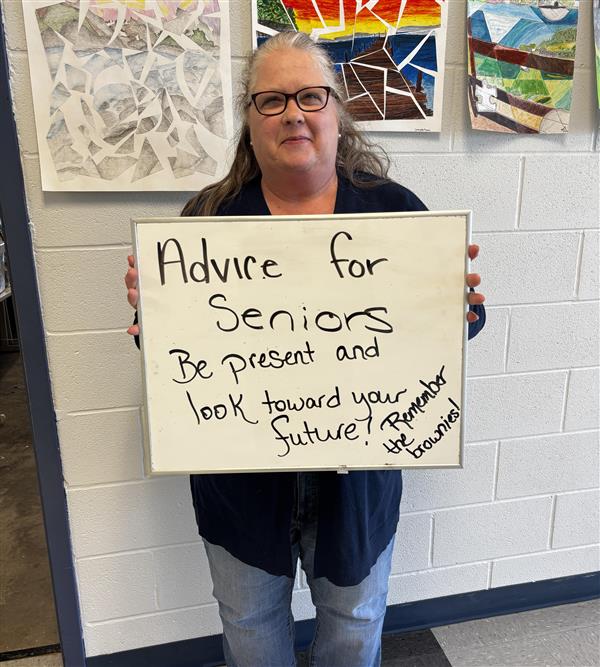 Advice for
Seniors
Be present and
look toward your
future!
Remember
the
brownies!